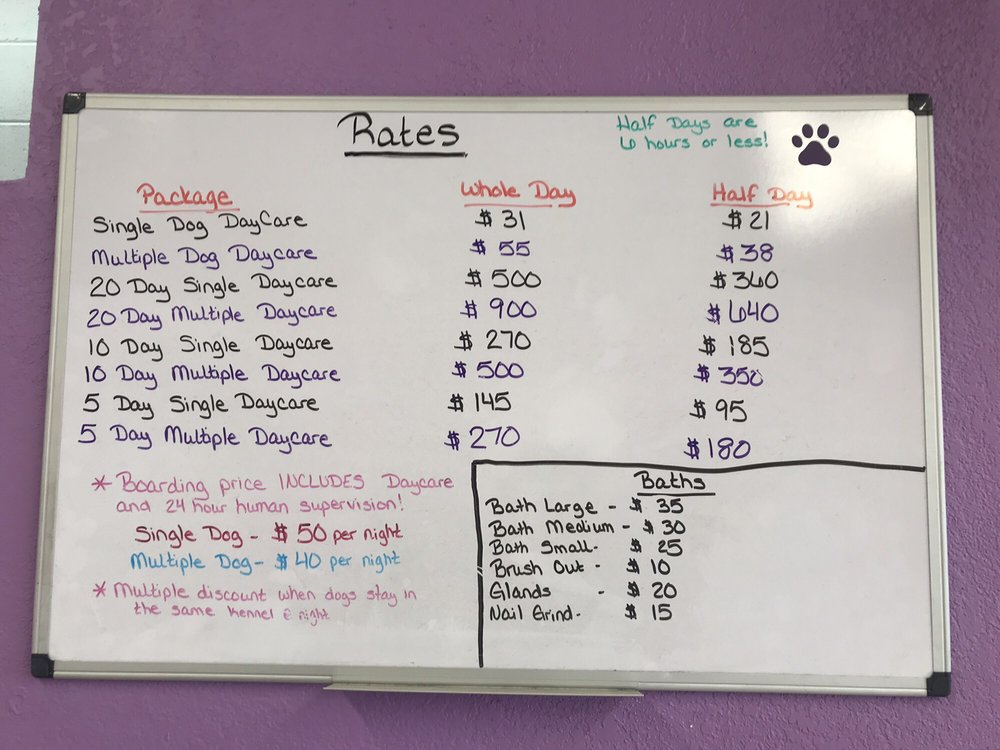 Rates
Half Days are
6 hours or less!
Package Whole Day Half Day
Single Dog DayCare $31 $21
Multiple Dog Daycare $55 $38
20 Day Single Daycare $500 $340
20 Day Multiple Daycare $900 $640
10 Day Single Daycare $270 $185
10 Day Multiple Daycare $500 $350
5 Day Single Daycare $145 $95
5 Day Multiple Daycare $270 $180
* Boarding price INCLUDES Daycare
and 24 hour human supervision!
Single Dog - $50 per night
Multiple Dog - $40 per night
* Multiple discount when dogs stay in
the same kennel @ night
Baths
Bath Large - $ 35
Bath Medium - $ 30
Bath Small - $ 25
Brush Out - $ 10
Glands - $ 20
Nail Grind - $ 15